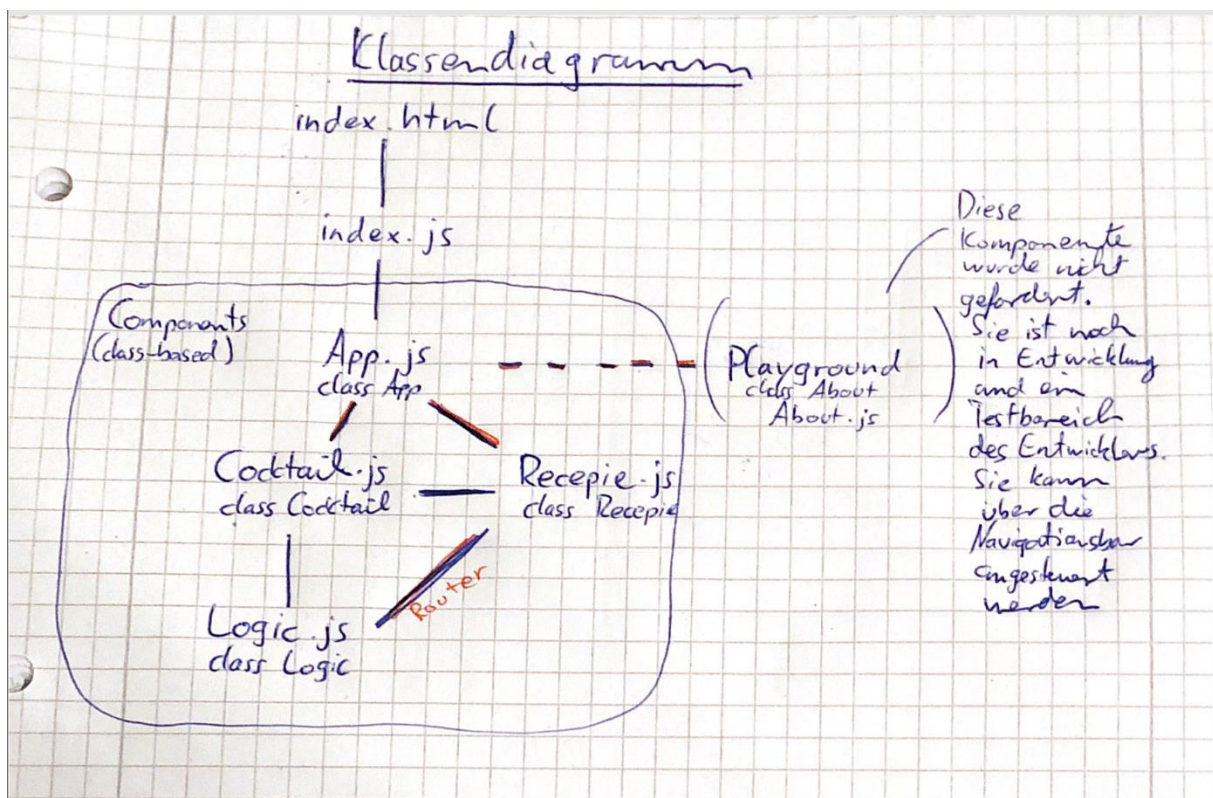 Klassendiagramm
index.html
index.js
Components
(class-based)
App.js
class App
Cocktail.js
class Cocktail
Recepie.js
class Recepie
Router
Logic.js
class Logic
Playground
class About
About.js
Diese
Komponente
wurde nicht
gefordert.
Sie ist noch
in Entwicklung
und ein
Testbereich
des Entwicklers.
Sie kann
über die
Navigationsbar
angesteuert
werden